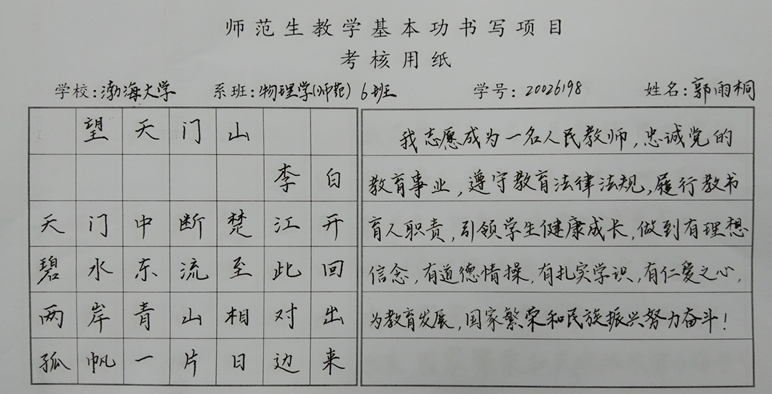 师范生教学基本功书写项目
考核用纸
学校:渤海大学 系班:物理学(师范) 6班 学号:20026198 姓名:郭雨桐
望天门山
李白
天门中断楚江开
碧水东流至此回
两岸青山相对出
孤帆一片日边来
我志愿成为一名人民教师,忠诚党的
教育事业,遵守教育法律法规,履行教书
育人职责,引领学生健康成长,做到有理想
信念,有道德情操,有扎实学识,有仁爱之心,
为教育发展,国家繁荣和民族振兴努力奋斗!